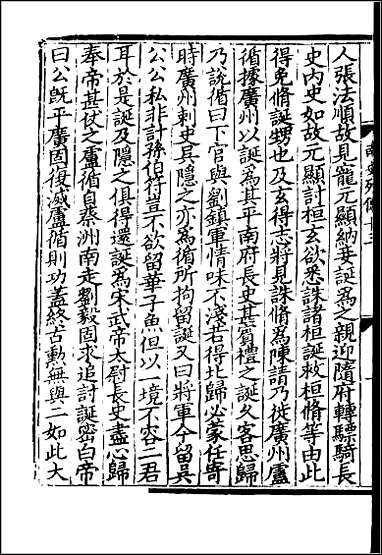 人張法順故見寵元顯納妾誕為之親迎隨府轉驃騎長
史内史如故元顯討桓玄欲悉誅諸桓誕救桓脩等由此
得免脩誕甥也及玄得志將見誅脩為陳請乃徙廣州盧
循據廣州以誕為其平南府長史甚賓禮之誕久客思歸
乃說循曰下官與劉鎮軍情味不淺若得北歸必蒙任寄
時廣州刺史吳隱之亦為循所拘留誕又曰將軍今留吳
公公私非計孫伯符豈不欲留華子魚但以一境不容二君
耳於是誕及隱之俱得還誕為宋武帝太尉長史盡心歸
奉帝甚仗之盧循自蔡洲南走劉毅固求追討誕密白帝
曰公既平廣固復滅盧循則功蓋終古勳無與二如此大
南史列傳十三